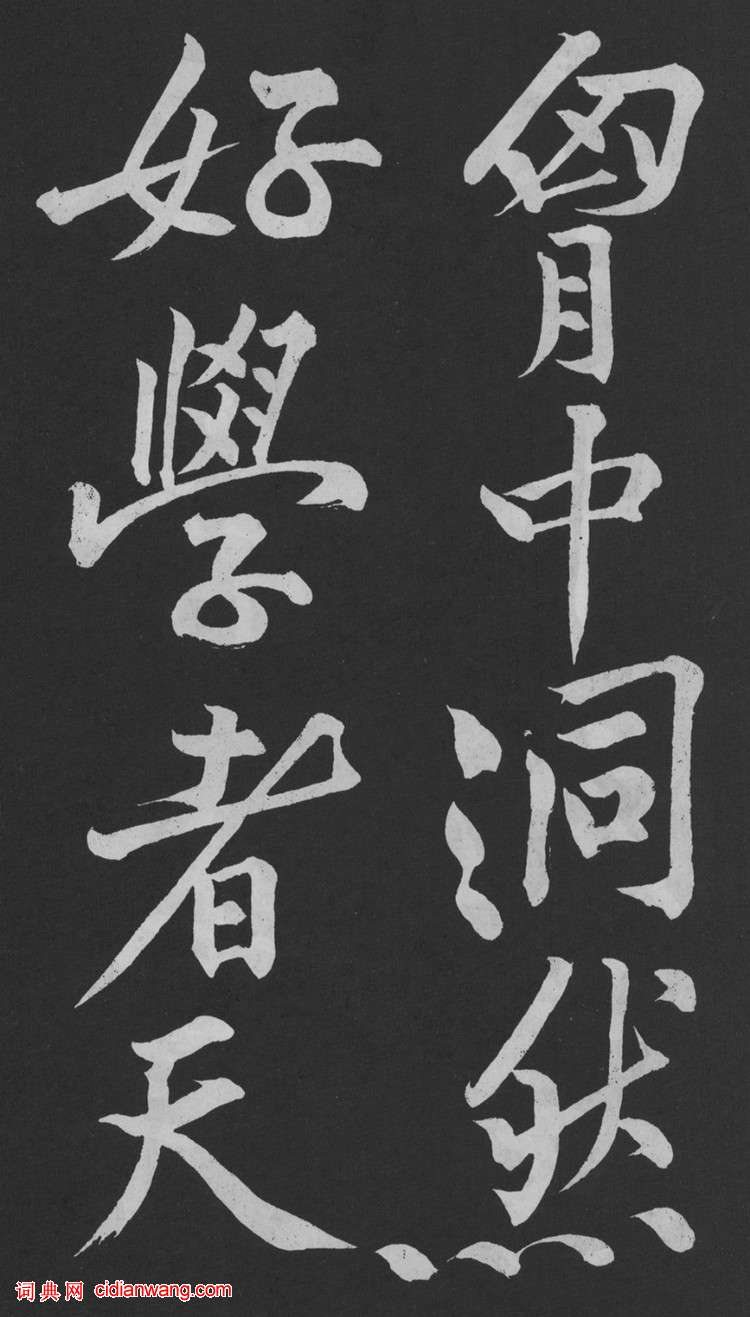 胷中洞然
好學者天
词典网 cidianwang.com